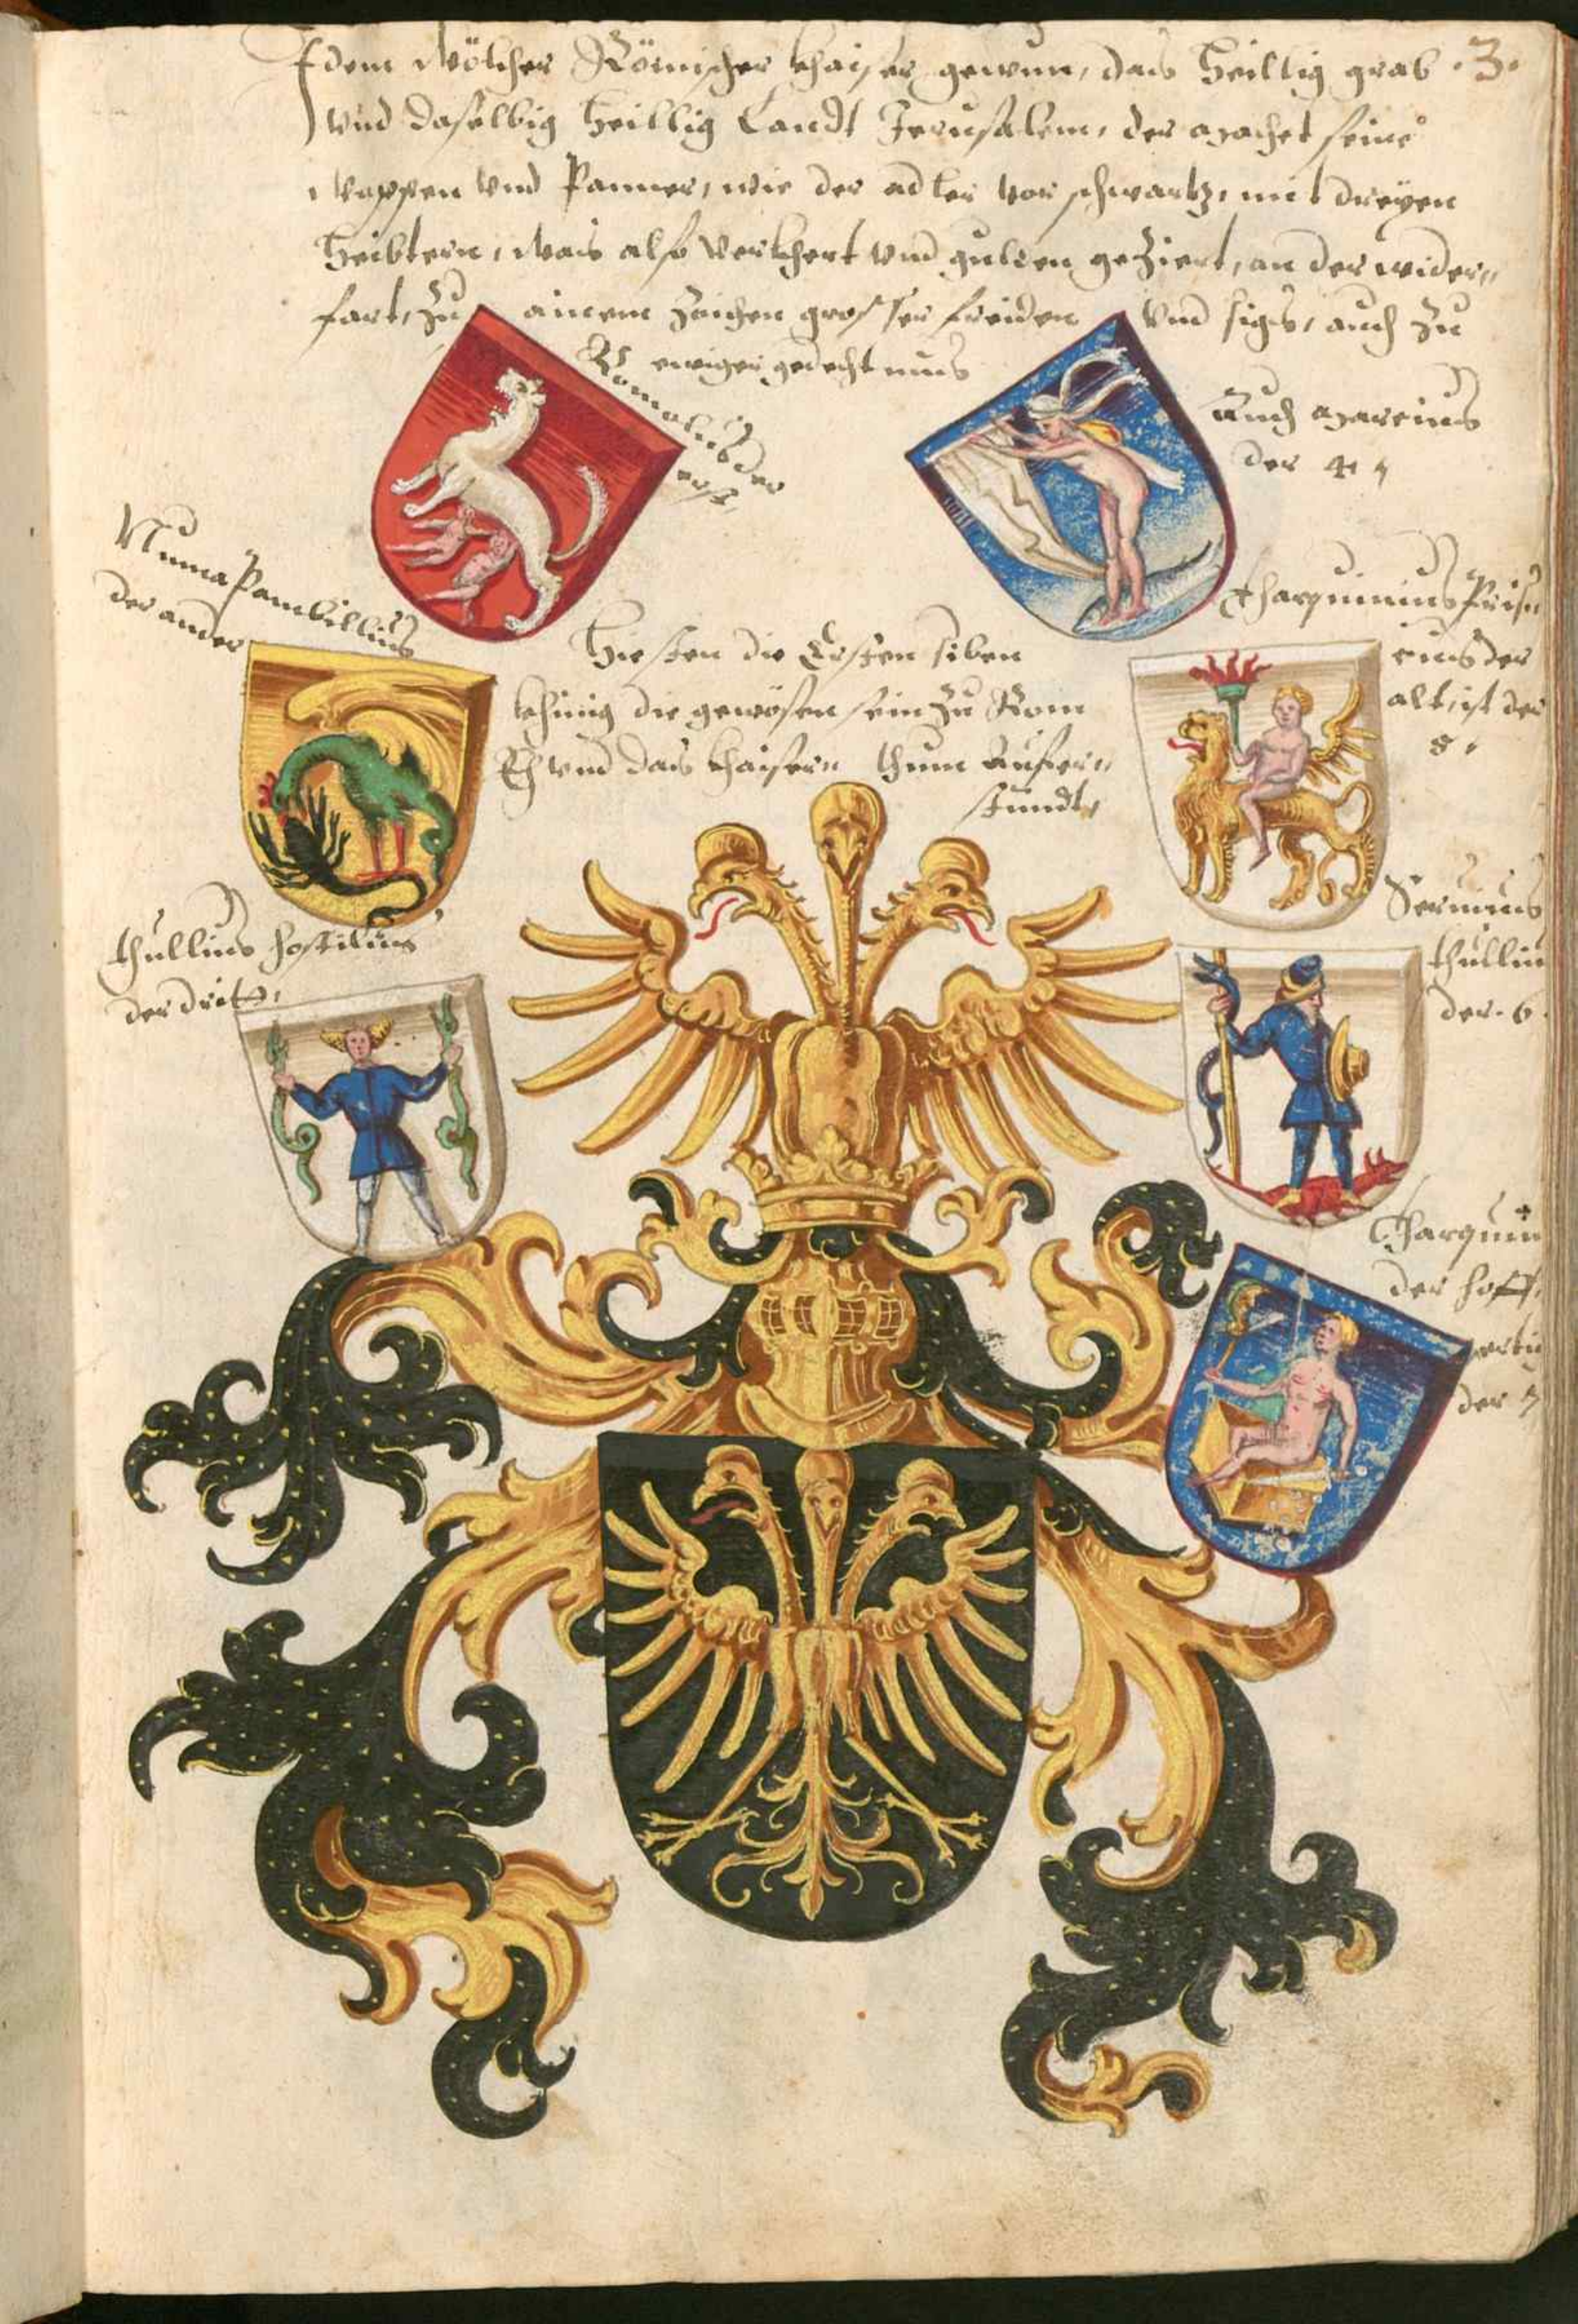 Idem Wölcher Römischer khaiser gewun, das Heillig grab .3.
vnd daselbig heillig Landt Jerusalem, der machet seine
wappen vnd Panner, wie der adler vor schwartz, mit dreyen
Heibtern, was also verkhert vnd gulden geziert, an der wider„
fart, zu ainem zaichen grosser freiden vnd sigs, auch zu
ewiger gedechtnus
Romolus der
erst,
Auch marcius
der 4,
Numa Pambillius
der ander
Tharquinius Pris„
cius der
alt, ist der
5,
Hiessen die Ersten siben
khinig die gewösen sein zu Rom
Eh vnd das khaiser„ thum aufer„
stundt,
thullius hostilius
der drit,
Seruius
thullius
der .6.
Tharquin
der hoff„
ertig
der 7